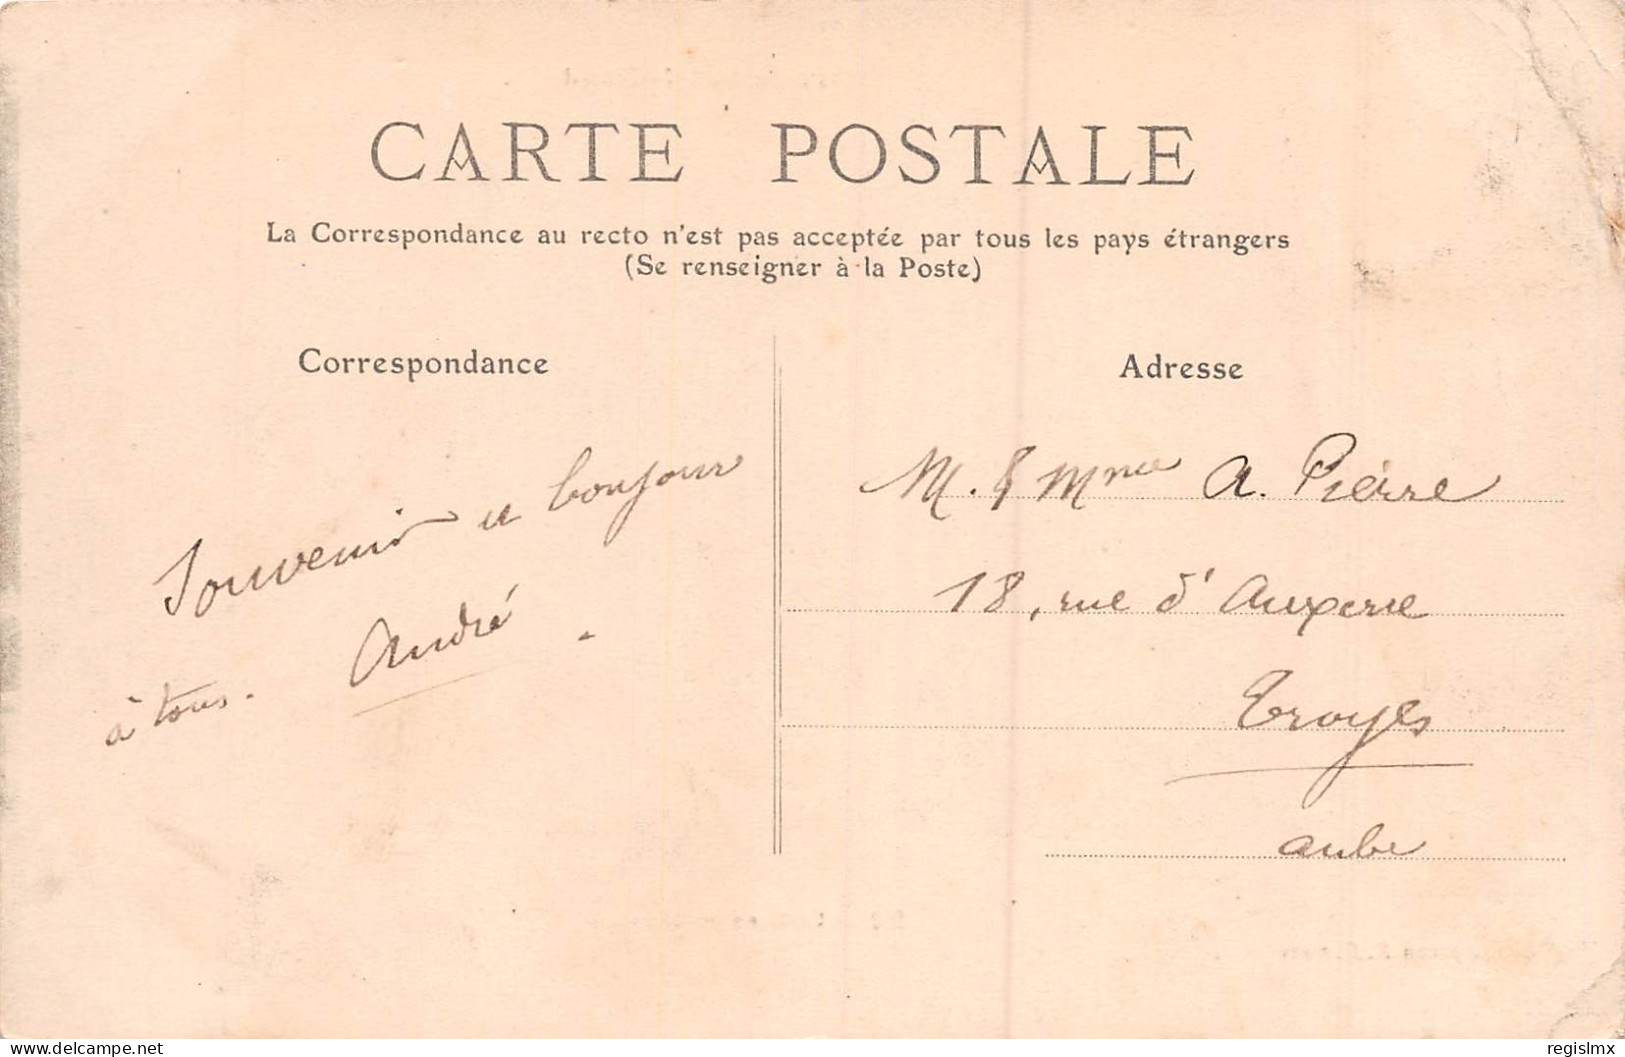 CARTE POSTALE
La Correspondance au recto n'est pas acceptée par tous les pays étrangers
(Se renseigner à la Poste)
Correspondance
Souvenir et bonjour
à tous. André
Adresse
M. & Mme A. Pierre
18, rue d'Auxerre
Troyes
Aube
www.delcampe.net
regislmx